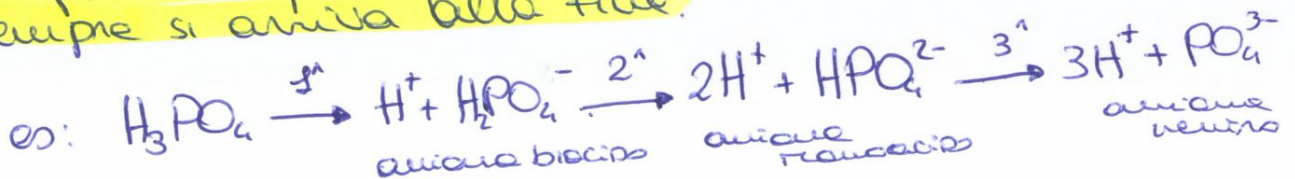 sempre si arriva alla fine.
es: H₃PO₄ —1^→ H⁺ + H₂PO₄⁻ —2^→ 2H⁺ + HPO₄²⁻ —3^→ 3H⁺ + PO₄³⁻
anione biacido anione monoacido anione neutro